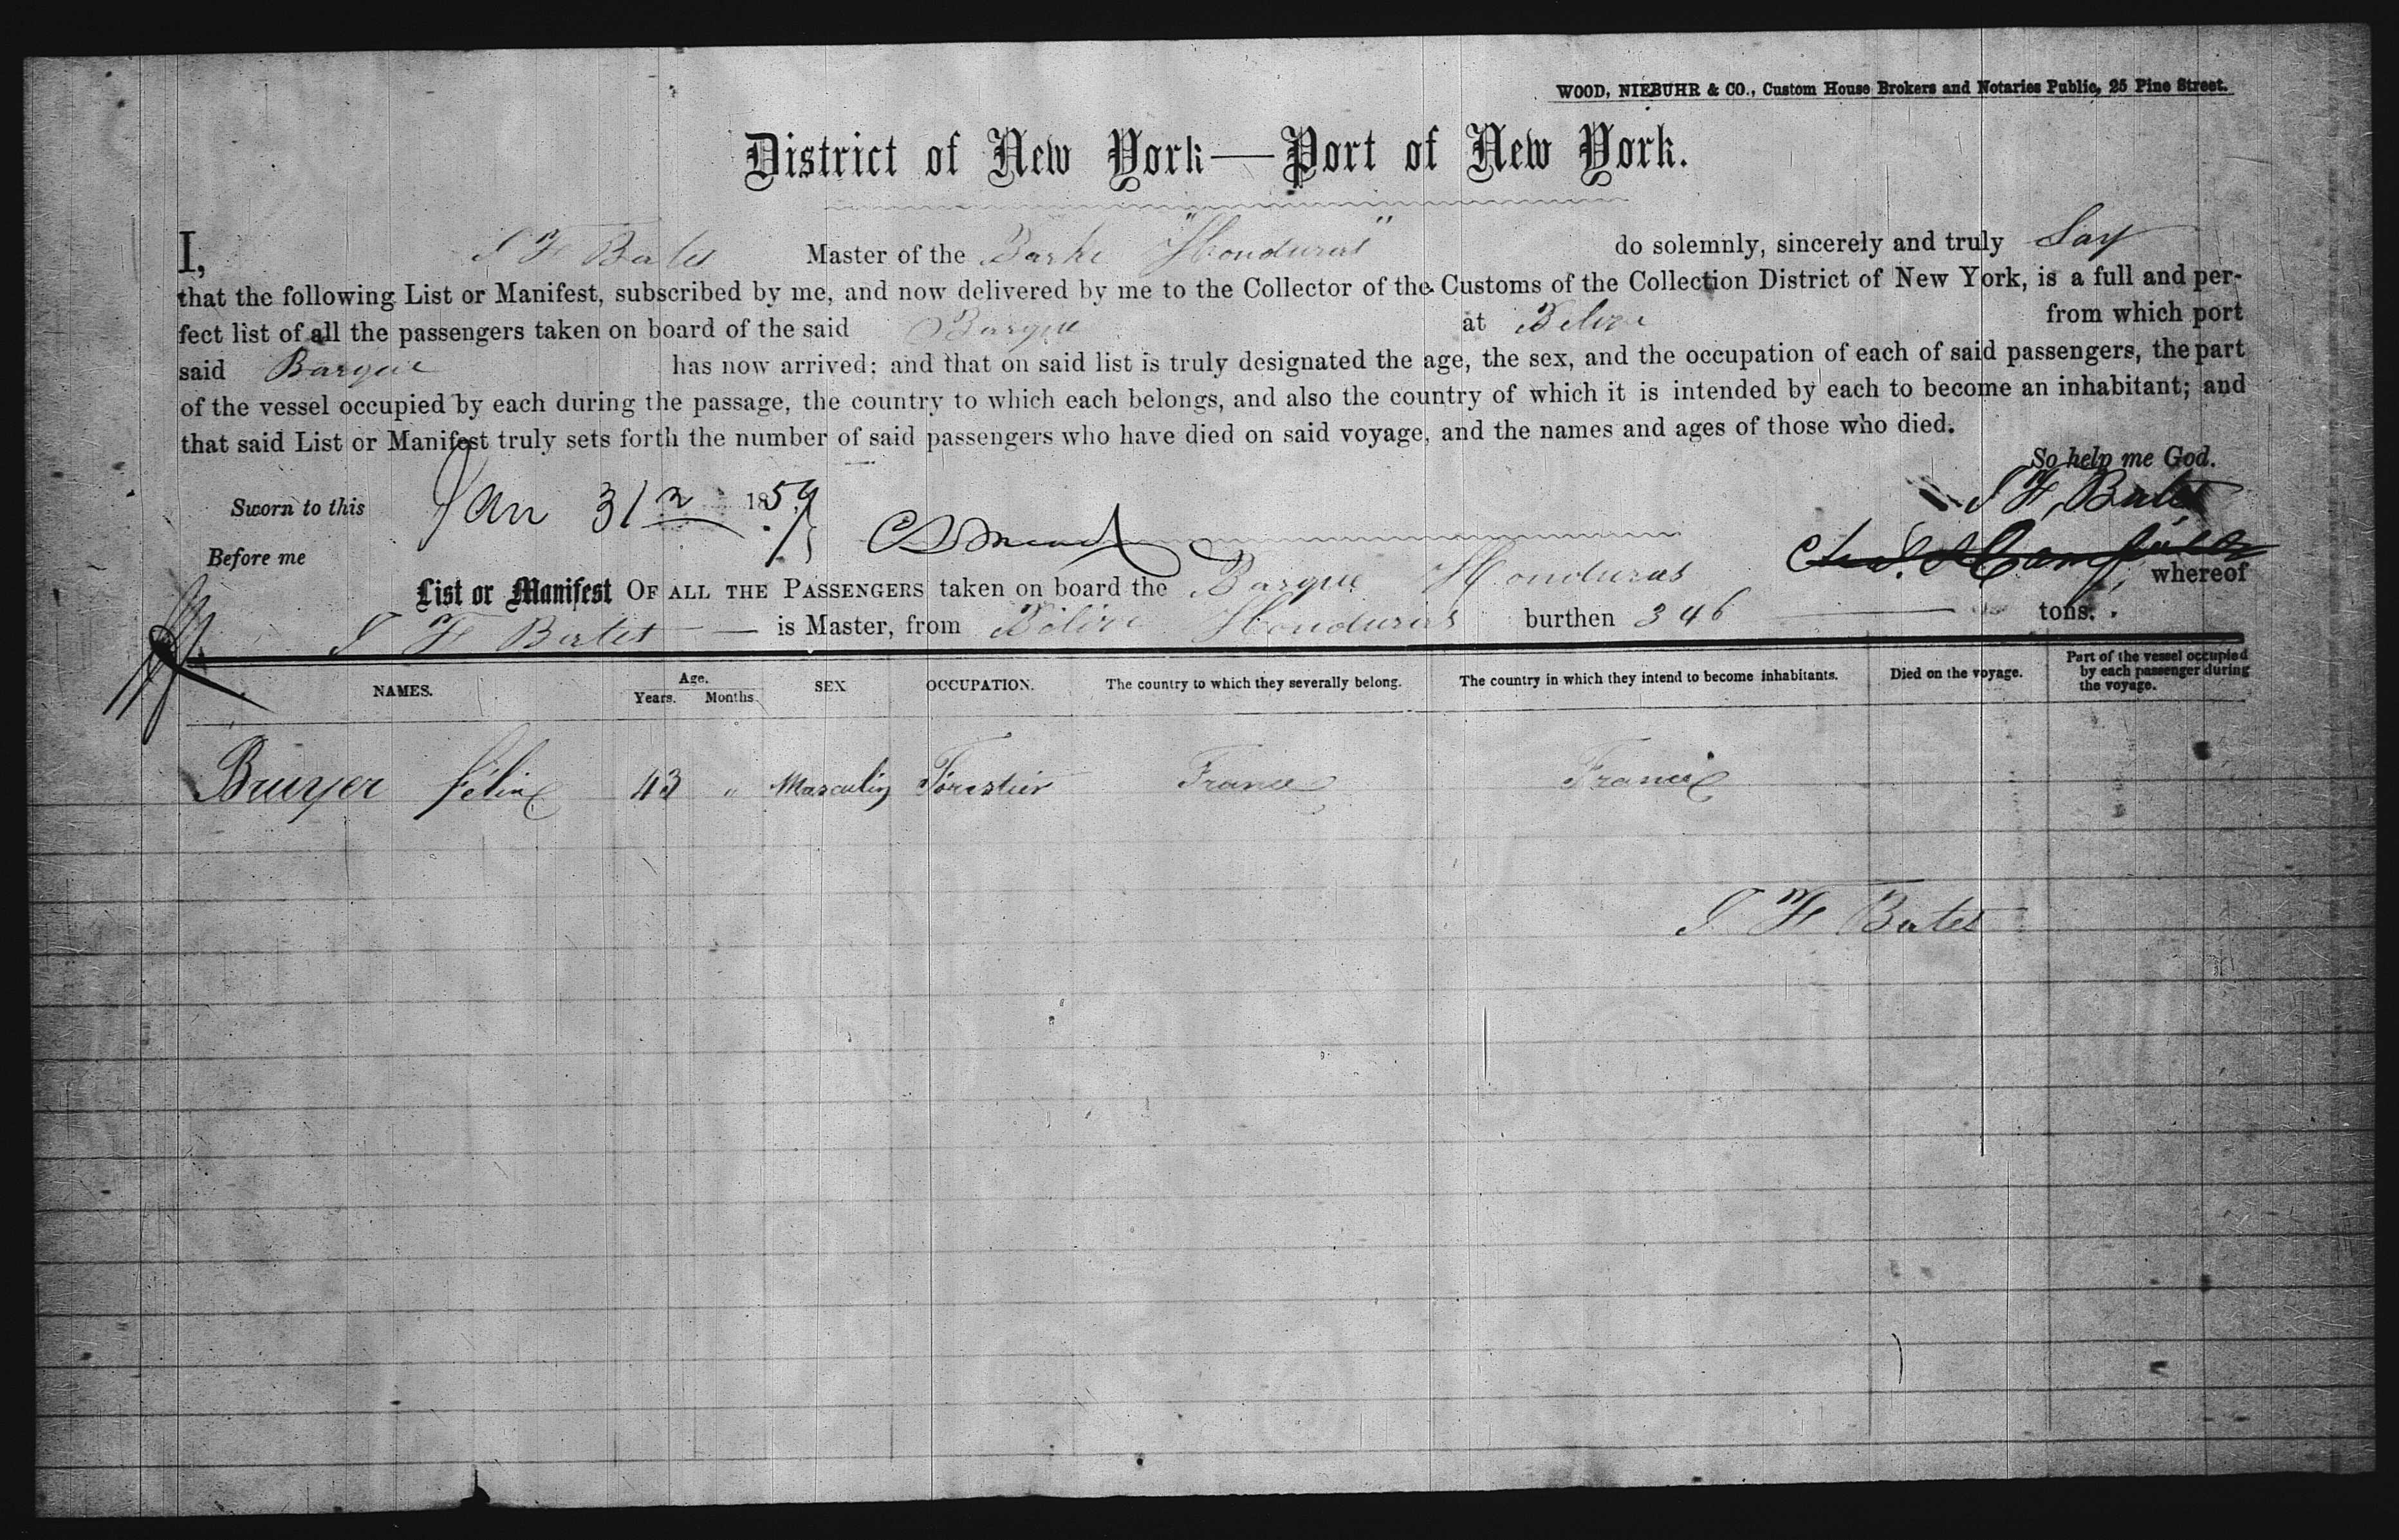 WOOD, NIEBUHR & CO., Custom House Brokers and Notaries Public, 25 Pine Street.
District of New York—Port of New York.
I, S F Bates Master of the Barke "Honduras" do solemnly, sincerely and truly Say
that the following List or Manifest, subscribed by me, and now delivered by me to the Collector of the Customs of the Collection District of New York, is a full and per-
fect list of all the passengers taken on board of the said Barque at Belize from which port
said Barque has now arrived; and that on said list is truly designated the age, the sex, and the occupation of each of said passengers, the part
of the vessel occupied by each during the passage, the country to which each belongs, and also the country of which it is intended by each to become an inhabitant; and
that said List or Manifest truly sets forth the number of said passengers who have died on said voyage, and the names and ages of those who died.
So help me God.
Sworn to this Jan 31 1859 S F Bates
Before me
List or Manifest OF ALL THE PASSENGERS taken on board the Barque Honduras whereof
S F Bates is Master, from Belize Honduras burthen 346 tons.
NAMES. Age. Years. Months. SEX OCCUPATION. The country to which they severally belong. The country in which they intend to become inhabitants. Died on the voyage. Part of the vessel occupied by each passenger during the voyage.
Bruyer félix 43 " Masculin Forestier France France
S F Bates